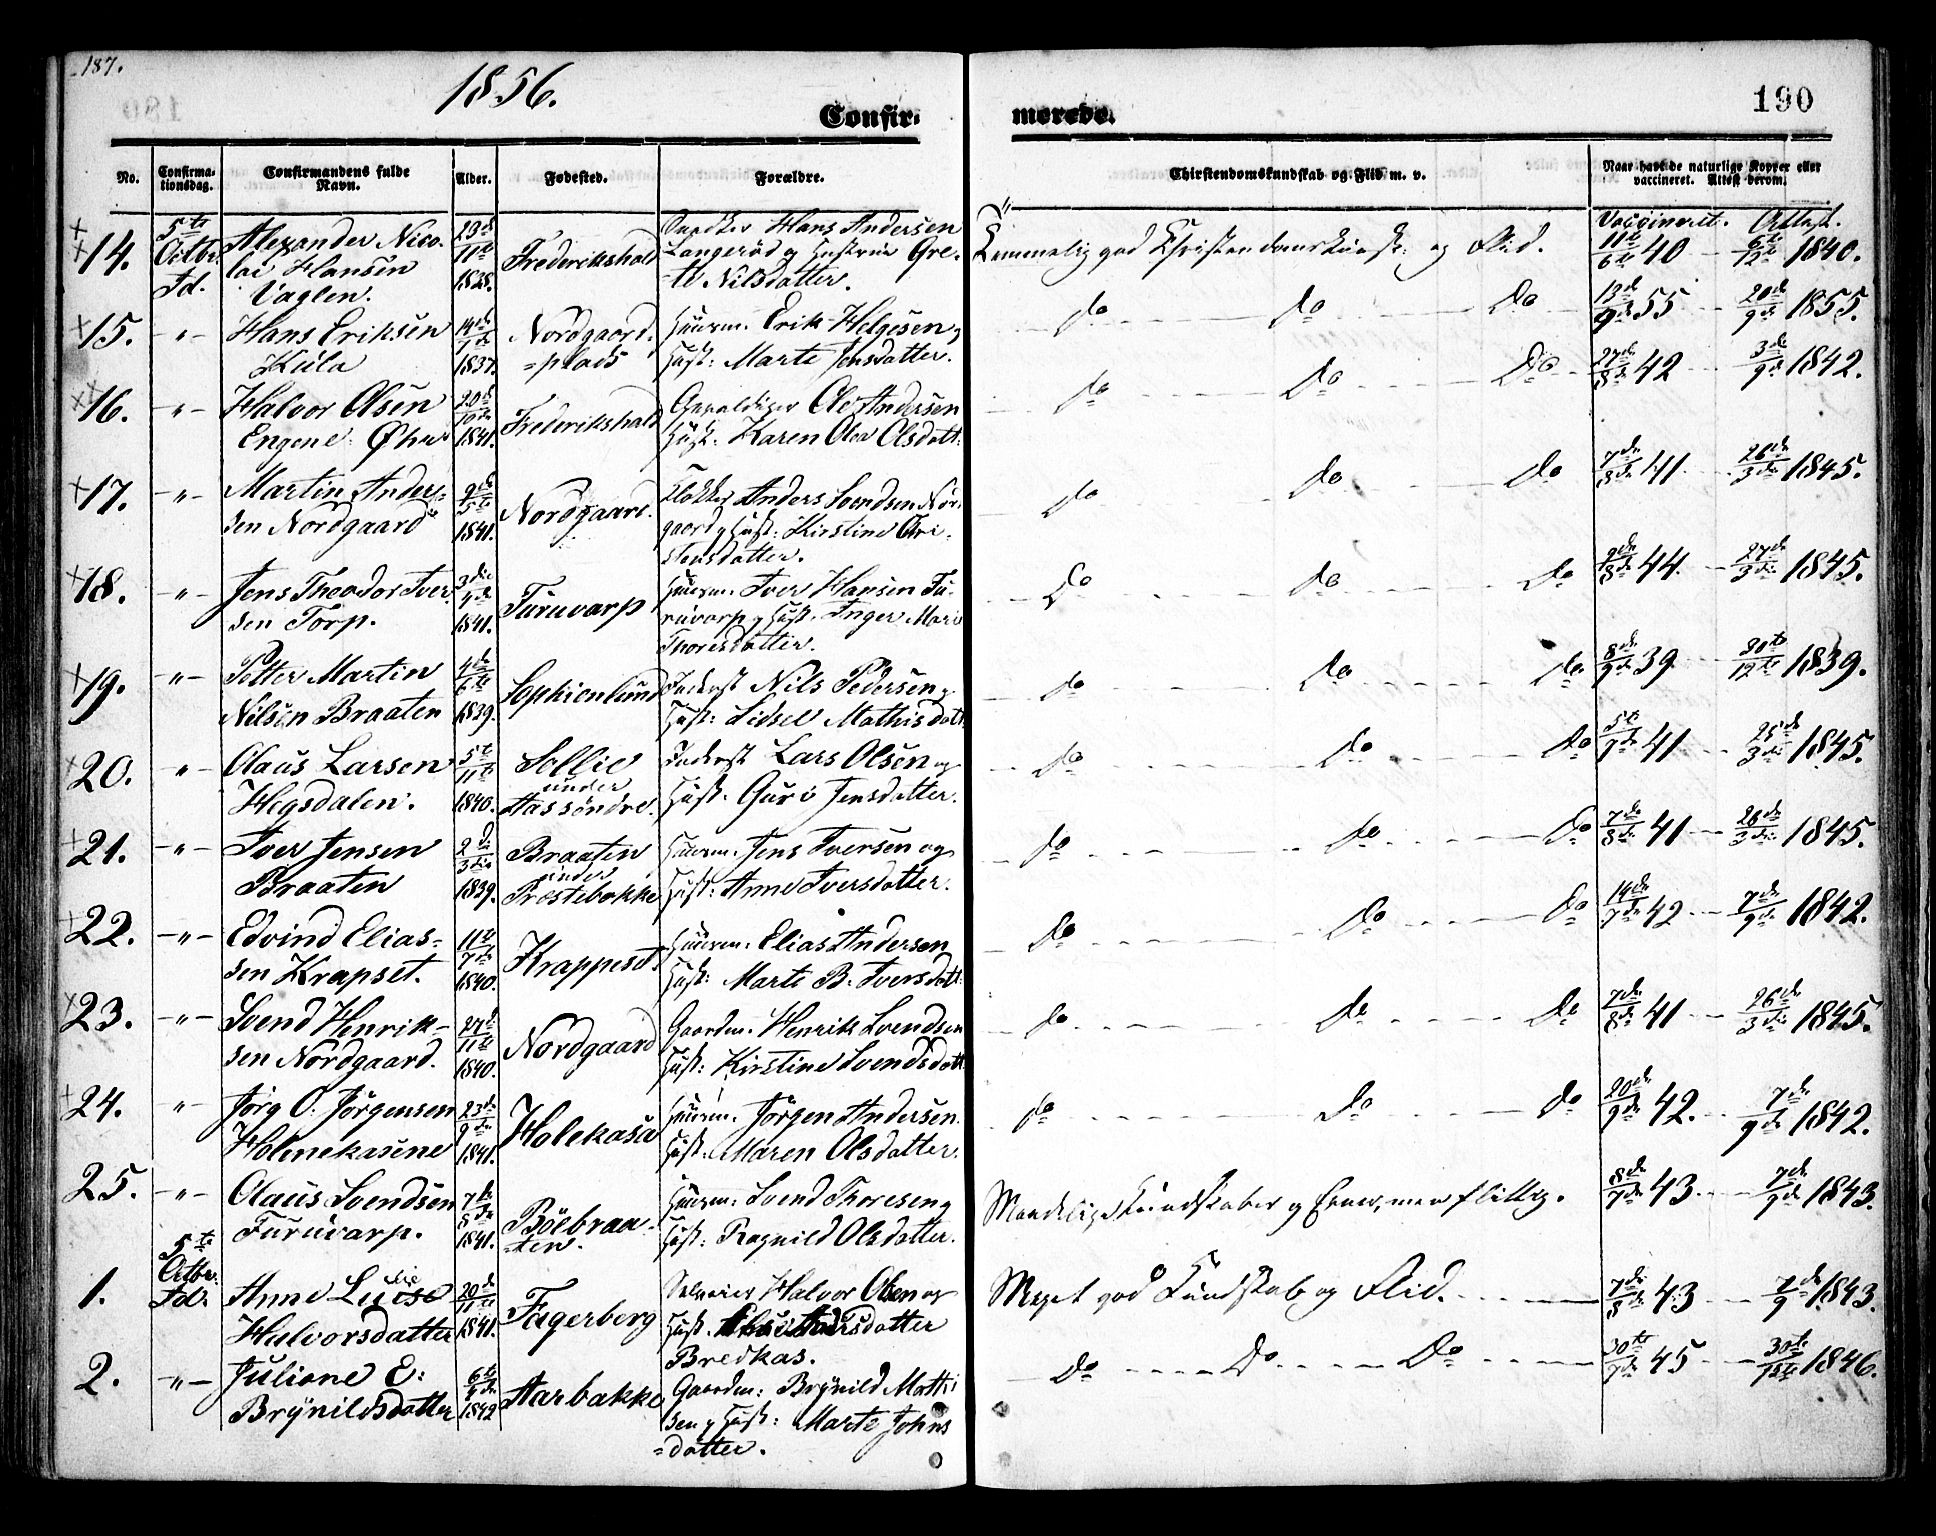 187.
1856.
190
Confir-
merede.
No.
Confirma-
tionsdag.
Confirmandens fulde
Navn.
Alder.
Fødested.
Forældre.
Chirstendomskundskab og Flid m. v.
Naar havt de naturlige Kopper eller
vaccineret. Attest derom.
14. 5te Octbr. Td. Alexander Nico-
lai Hansen
Vaglen.
29d 11te 1828.
Frederikshald
Hans Andersen
Langeröd g Hustrue Gre-
te Nilsdatter.
Temmelig god Christendomskundsk: og Flid.
Vaccineret. Attest.
11te/6te 40 – 6te/12te 1840.
15. -"- Hans Eriksen
Kula
14de 1837.
Nordgaard-
=plads
Huusm. Erik Helgesen g
Hust: Marte Jensdatter.
do do do
13de/9de 55 20de/9de 1855.
16. -"- Halvor Olsen
Engene.
20de 10de 1841.
Frederikshald
Ole Andersen
Hust: Karen Olea Olsdatt:
do do do
27de/8de 42 3de/9de 1842.
17. -"- Martin Ander-
sen Nordgaard
9de 5te 1841.
Nordgaard.
Klokker Anders Svendsen Nor-
gaard g Hust: Kirstine Chri-
stensdatter.
do do do
7de/8de 41 26de/3die 1845.
18. -"- Jens Theodor Iver-
sen Torp.
3die 1841.
Furuvarp
Huusm. Iver Hansen Fu-
ruvarp g Hust. Inger Marie
Thoresdatter.
do do do
9de/8de 44 27de/3die 1845.
19. -"- Petter Martin
Nilsen Braaten
4de 6te 1839.
Sophienlund
Inderst Nils Pedersen g
Hust: Sidsel Mathisdatt
do do do
8de/9de 39 30te/12te 1839.
20. -"- Olaus Larsen
Hegsdalen.
5te 11te 1840.
Sollie
under
Aassöndre.
Inderst Lars Olsen og
Hust. Guri Jensdatter.
do do do
5te/7de 41 25de/3die 1845.
21. -"- Iver Jensen
Braaten
2den 3die 1839.
Braaten
under
Prestebakke
Huusm. Jens Iversen og
Hust: Anne Iversdatter.
do do do
7de/8de 41 26de/3die 1845.
22. -"- Edvind Elias-
sen Krapset.
11te 7de 1840.
Krappeset.
Huusm: Elias Andersen
Hust: Marte B. Iversdatt
do do do
14de/7de 42 7de/9de 1842.
23. -"- Svend Henrik-
sen Nordgaard.
27de 11te 1840.
Nordgaard
Gaardm. Henrik Svendsen
Hust: Kirstine Svendsdatt
do do do
7de/8de 41 26de/3die 1845.
24. -"- Jörg O. Jörgensen
Holenekasene
23de 9de 1841.
Holekasa
Huusm. Jörgen Andersen.
Hust. Maren Olsdatter.
do do do
20de/9de 42. 7de/9de 1842.
25. -"- Olaus Svendsen
Furuvarp.
7de 8de 1841.
Böebraa-
-ten.
Huusm. Svend Thoresen g
Hust: Ragnild Olsdatter.
Maadelige Kundskaber g Evner, men flittig.
8de/7de 43. 7de/9de 1843.
1. 5te Octbr. Td. Anne Luise
lie
Halvorsdatter
20de 11te 1841.
Fagerberg
Halvor Olsen og
Hust.
Bredkas.
Meget god Kundskab og Flid.
7de/8de 43 7de/9 1843.
2. -"- Juliane E:
Brynildsdatter
6te 1842
Aarbakke
Gaardm: Brynild Mathi
sen g Hust: Marte Johns
=datter.
Do Do Do
30te/7de 45 30te/12te 1846.